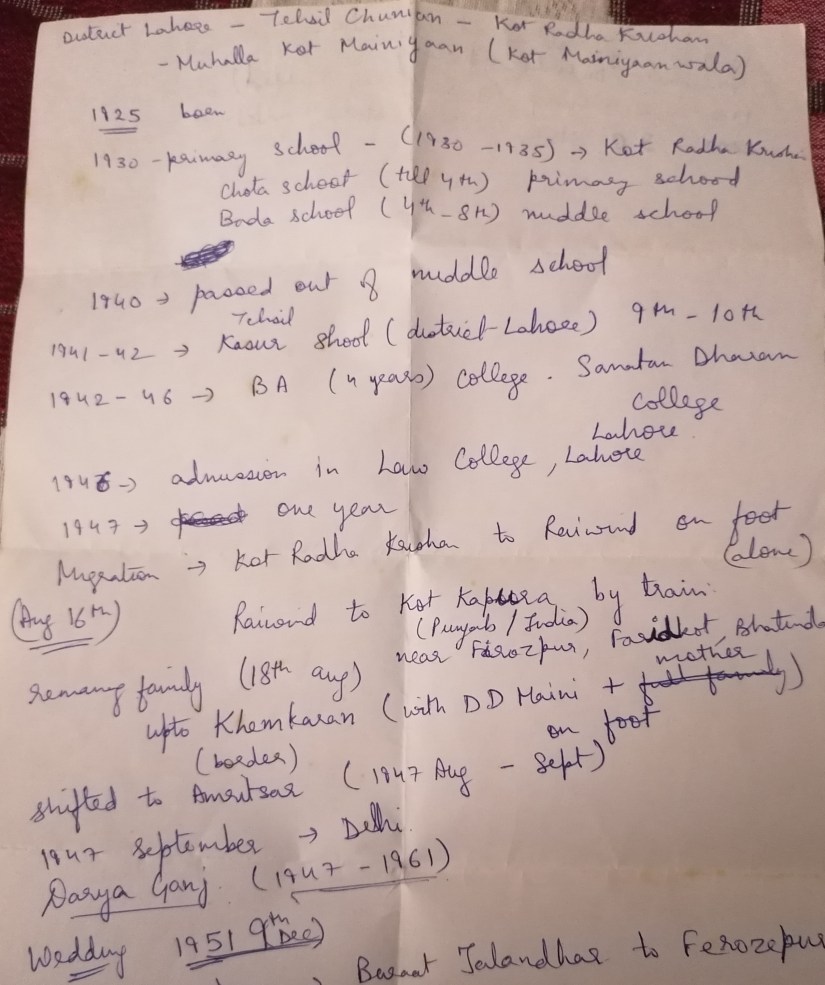 District Lahore - Tehsil Chunian - Kot Radha Krishan
- Muhalla Kot Mainiyaan (Kot Mainiyaanwala)
1925 born
1930 - primary school - (1930 - 1935) → Kot Radha Krishan
Chota school (till 4th) primary school
Bada school (4th - 8th) middle school
1940 → passed out of middle school
Tehsil
1941-42 → Kasur shool (district-Lahore) 9th - 10th
1942-46 → BA (4 years) College. Sanatan Dharam
College
Lahore.
1946 → admission in Law College, Lahore
1947 → one year
Migration → Kot Radha Krishan to Raiwind on foot
(alone)
(Aug 16th) Raiwind to Kot Kapoora by train.
(Punjab / India)
near Firozpur, Faridkot, Bhatinda
remang family (18th Aug) mother
upto Khemkaran (with DD Maini + full family)
(border) on foot
shifted to Amritsar (1947 Aug - Sept)
1947 September → Delhi.
Darya Ganj. (1947 - 1961)
Wedding 1951 9th Dec)
Baraat Jalandhar to Ferozepur